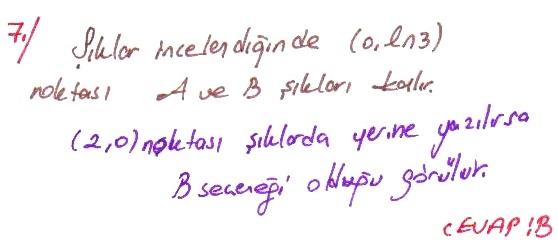 7./ Şıklar incelendiğinde (0, ln3)
noktası A ve B şıkları kalır.
(2,0) noktası şıklarda yerine yazılırsa
B seçeneği olduğu görülür.
CEVAP: B